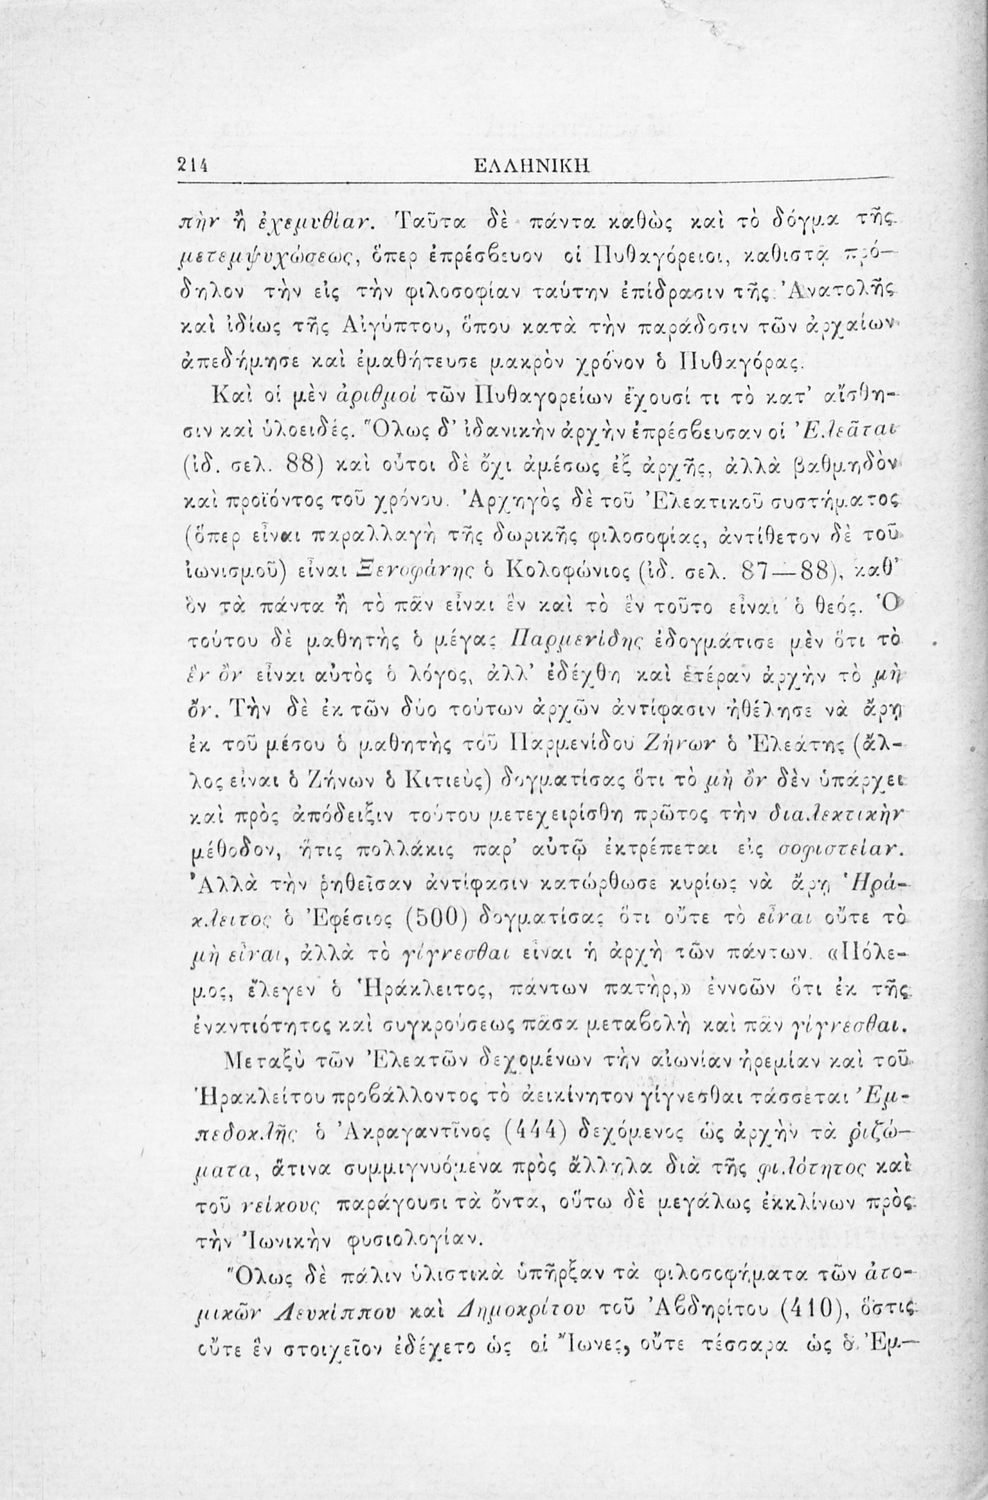 214 ΕΛΛΗΝΙΚΗ
πὴν ἢ ἐχεμυθίαν. Ταῦτα δὲ πάντα καθὼς καὶ τὸ δόγμα τῆς
μετεμψυχώσεως, ὅπερ ἐπρέσβευον οἱ Πυθαγόρειοι, καθιστᾷ πρό—
δηλον τὴν εἰς τὴν φιλοσοφίαν ταύτην ἐπίδρασιν τῆς Ἀνατολῆς
καὶ ἰδίως τῆς Αἰγύπτου, ὅπου κατὰ τὴν παράδοσιν τῶν ἀρχαίων
ἀπεδήμησε καὶ ἐμαθήτευσε μακρὸν χρόνον ὁ Πυθαγόρας.
Καὶ οἱ μὲν ἀριθμοὶ τῶν Πυθαγορείων ἔχουσί τι τὸ κατ’ αἴσθη-
σιν καὶ ὑλοειδές. Ὅλως δ’ ἰδανικὴν ἀρχὴν ἐπρέσβευσαν οἱ Ἐλεᾶται
(ἰδ. σελ. 88) καὶ οὗτοι δὲ ὄχι ἀμέσως ἐξ ἀρχῆς, ἀλλὰ βαθμηδὸν
καὶ προϊόντος τοῦ χρόνου. Ἀρχηγὸς δὲ τοῦ Ἐλεατικοῦ συστήματος
(ὅπερ εἶναι παραλλαγὴ τῆς δωρικῆς φιλοσοφίας, ἀντίθετον δὲ τοῦ
ἰωνισμοῦ) εἶναι Ξενοφάνης ὁ Κολοφώνιος (ἰδ. σελ. 87—88), καθ’
ὃν τὰ πάντα ἢ τὸ πᾶν εἶναι ἓν καὶ τὸ ἓν τοῦτο εἶναι ὁ θεός. Ὁ
τούτου δὲ μαθητὴς ὁ μέγας Παρμενίδης ἐδογμάτισε μὲν ὅτι τὸ
ἓν ὂν εἶναι αὐτὸς ὁ λόγος, ἀλλ’ ἐδέχθη καὶ ἑτέραν ἀρχὴν τὸ μὴ
ὄν. Τὴν δὲ ἐκ τῶν δύο τούτων ἀρχῶν ἀντίφασιν ἠθέλησε νὰ ἄρῃ
ἐκ τοῦ μέσου ὁ μαθητὴς τοῦ Παρμενίδου Ζήνων ὁ Ἐλεάτης (ἄλ-
λος εἶναι ὁ Ζήνων ὁ Κιτιεὺς) δογματίσας ὅτι τὸ μὴ ὂν δὲν ὑπάρχει
καὶ πρὸς ἀπόδειξιν τούτου μετεχειρίσθη πρῶτος τὴν διαλεκτικὴν
μέθοδον, ἥτις πολλάκις παρ’ αὐτῷ ἐκτρέπεται εἰς σοφιστείαν.
Ἀλλὰ τὴν ῥηθεῖσαν ἀντίφασιν κατώρθωσε κυρίως νὰ ἄρῃ Ἡρά-
κλειτος ὁ Ἐφέσιος (500) δογματίσας ὅτι οὔτε τὸ εἶναι οὔτε τὸ
μὴ εἶναι, ἀλλὰ τὸ γίγνεσθαι εἶναι ἡ ἀρχὴ τῶν πάντων. «Πόλε-
μος, ἔλεγεν ὁ Ἡράκλειτος, πάντων πατὴρ,» ἐννοῶν ὅτι ἐκ τῆς
ἐναντιότητος καὶ συγκρούσεως πᾶσα μεταβολὴ καὶ πᾶν γίγνεσθαι.
Μεταξὺ τῶν Ἐλεατῶν δεχομένων τὴν αἰωνίαν ἠρεμίαν καὶ τοῦ
Ἡρακλείτου προβάλλοντος τὸ ἀεικίνητον γίγνεσθαι τάσσεται Ἐμ-
πεδοκλῆς ὁ Ἀκραγαντῖνος (444) δεχόμενος ὡς ἀρχὴν τὰ ῥιζώ—
ματα, ἅτινα συμμιγνυόμενα πρὸς ἄλληλα διὰ τῆς φιλότητος καὶ
τοῦ νείκους παράγουσι τὰ ὄντα, οὕτω δὲ μεγάλως ἐκκλίνων πρὸς
τὴν Ἰωνικὴν φυσιολογίαν.
Ὅλως δὲ πάλιν ὑλιστικὰ ὑπῆρξαν τὰ φιλοσοφήματα τῶν ἀτο-
μικῶν Λευκίππου καὶ Δημοκρίτου τοῦ Ἀβδηρίτου (410), ὅστις
οὔτε ἓν στοιχεῖον ἐδέχετο ὡς οἱ Ἴωνες, οὔτε τέσσαρα ὡς ὁ Ἐμ—